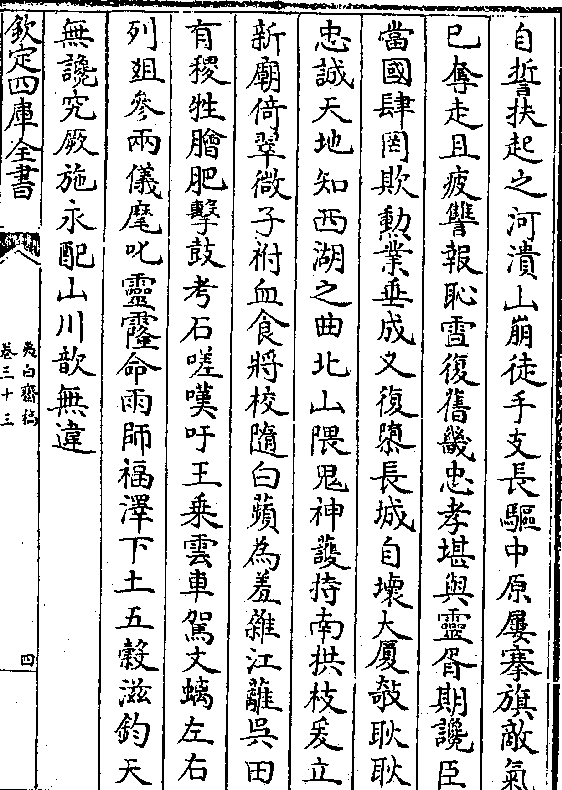 自誓扶起之河潰山崩徒手支長驅中原屢搴旗敵氣
已奪走且疲讐報恥雪復舊畿忠孝堪輿靈胥期讒臣
當國肆罔欺勲業垂成又復隳長城自壞大厦攲耿耿
忠誠天地知西湖之曲北山隈鬼神護持南拱枝爰立
新廟倚翠微子祔血食將校隨白蘋為羞雜江蘺吳田
有稷牲膾肥擊鼓考石嗟嘆吁王乗雲車駕文螭左右
列爼參兩儀麾叱靈霳命雨師福澤下土五穀滋鈞天
無讒究厥施永配山川歆無違
欽定四庫全書
夷白齋稿
卷三十三
四